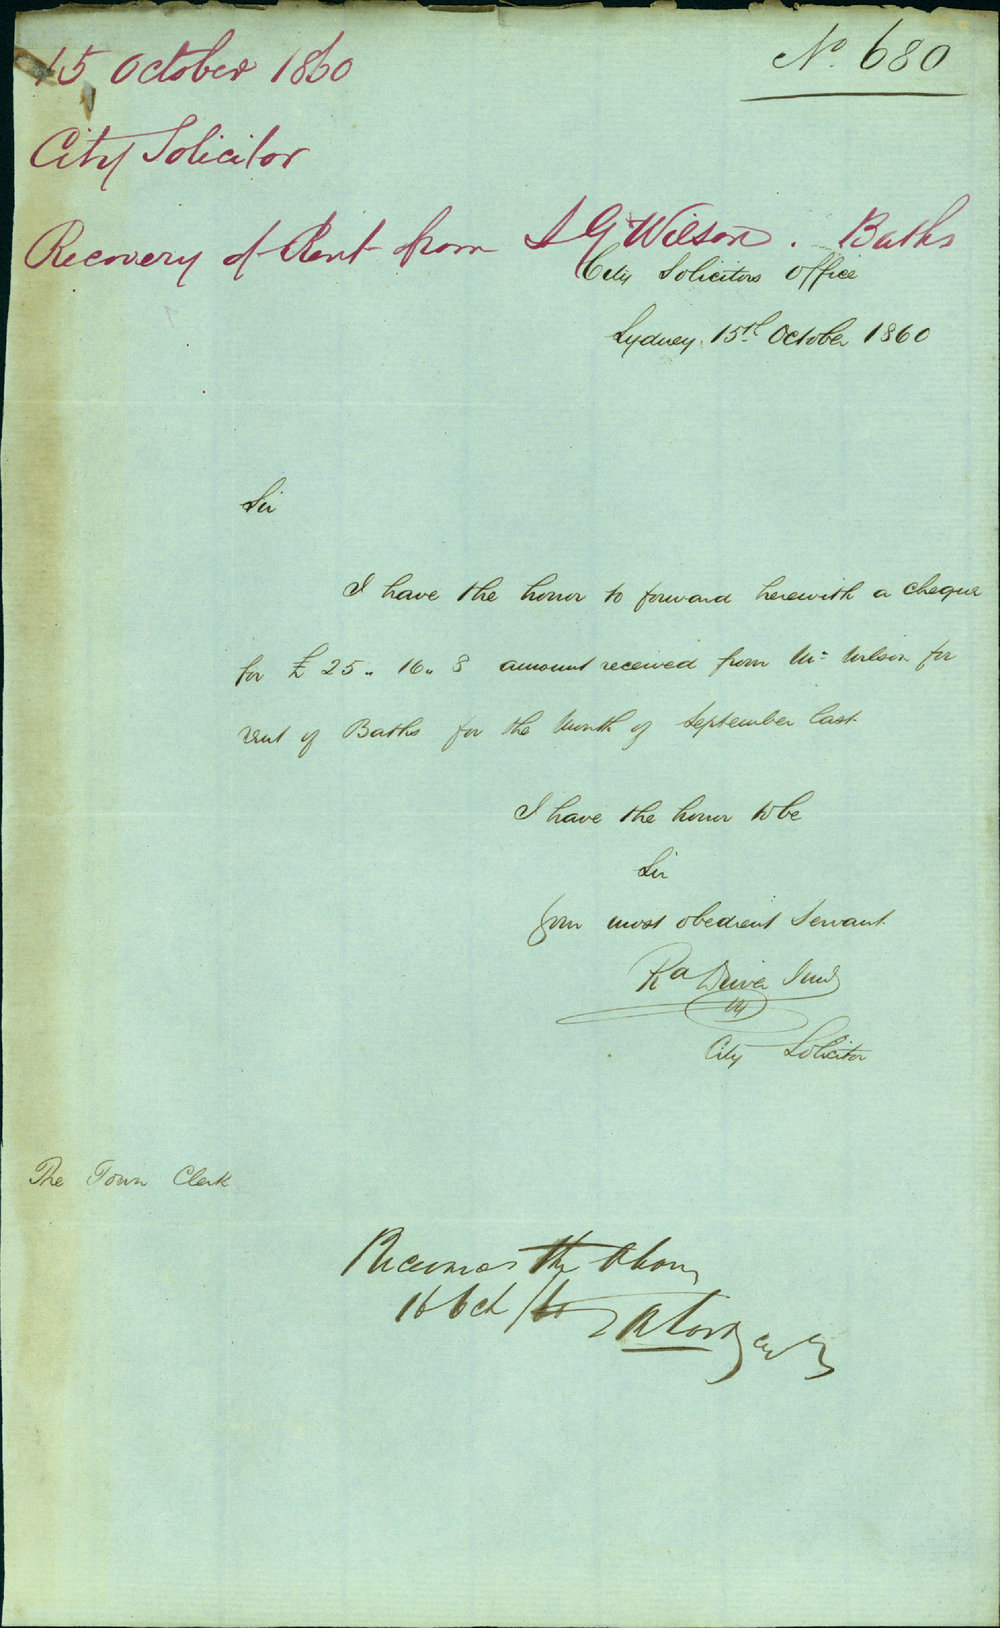 15 October 1860
No. 680
City Solicitor
Recovery of Rent from I G Wilson. Baths
City Solicitors Office
Sydney. 15th October 1860
Sir
I have the honor to forward herewith a cheque
for £ 25 " 16 " 8 amount received from Mr Wilson for
rent of Baths for the Month of September last
I have the honor to be
Sir
Your most obedient Servant
Rd Driver Junr
City Solicitor
The Town Clerk
Received the above
16 Oct /60